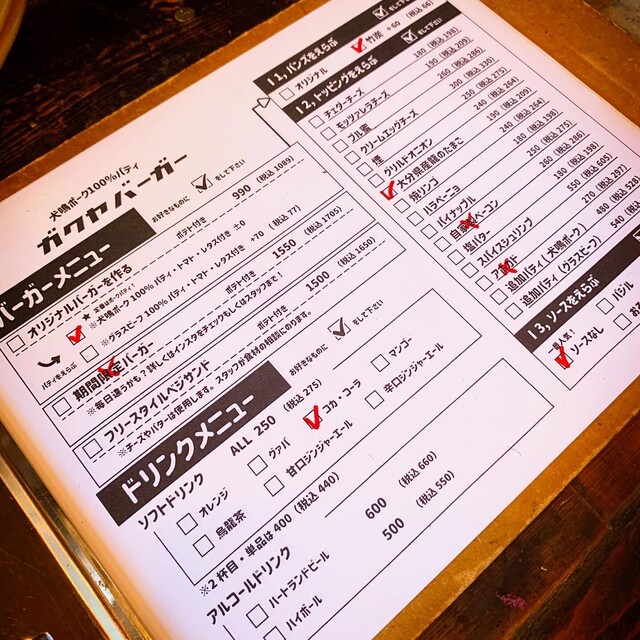 犬鳴ポーク100%パティ
ガクヤバーガー
お好きなものに をして下さい
バーガーメニュー
オリジナルバーガーを作る
990 (税込 1089)
★ 定番はポークパティ!
※犬鳴ポーク 100% パティ・トマト・レタス付き ±0
ポテト付き
※グラスビーフ 100% パティ・トマト・レタス付き +70 (税込 77)
パティをえらぶ
期間限定バーガー
ポテト付き
1550 (税込 1705)
※毎日違うかも?詳しくはインスタをチェックもしくはスタッフまで!
フリースタイルベジサンド
ポテト付き
1500 (税込 1650)
※チーズやバターは使用します。スタッフが食材の相談にのります。
ドリンクメニュー
お好きなものに をして下さい
ソフトドリンク
ALL 250 (税込 275)
オレンジ
グァバ
コカ・コーラ
マンゴー
烏龍茶
甘口ジンジャーエール
辛口ジンジャーエール
※2 杯目・単品は 400 (税込 440)
アルコールドリンク
ハートランドビール
600 (税込 660)
ハイボール
500 (税込 550)
1 1, バンズをえらぶ
をして下さい
オリジナル
竹炭 +60 (税込 66)
1 2, トッピングをえらぶ
をして下さい
チェダーチーズ
180 (税込 198)
モッツァレラチーズ
190 (税込 209)
ブルーチーズ
260 (税込 286)
クリームエッグチーズ
300 (税込 330)
250 (税込 275)
グリルドオニオン
240 (税込 264)
大分県産龍のたまご
190 (税込 209)
焼リンゴ
240 (税込 264)
ハラペーニョ
180 (税込 198)
パイナップル
250 (税込 275)
自家製ベーコン
260 (税込 286)
塩バター
180 (税込 198)
スパイスシュリンプ
550 (税込 605)
アボカド
270 (税込 297)
追加パティ(犬鳴ポーク)
480 (税込 528)
追加パティ(グラスビーフ)
540 (税込
1 3, ソースをえらぶ
一番人気!
ソースなし
バジル